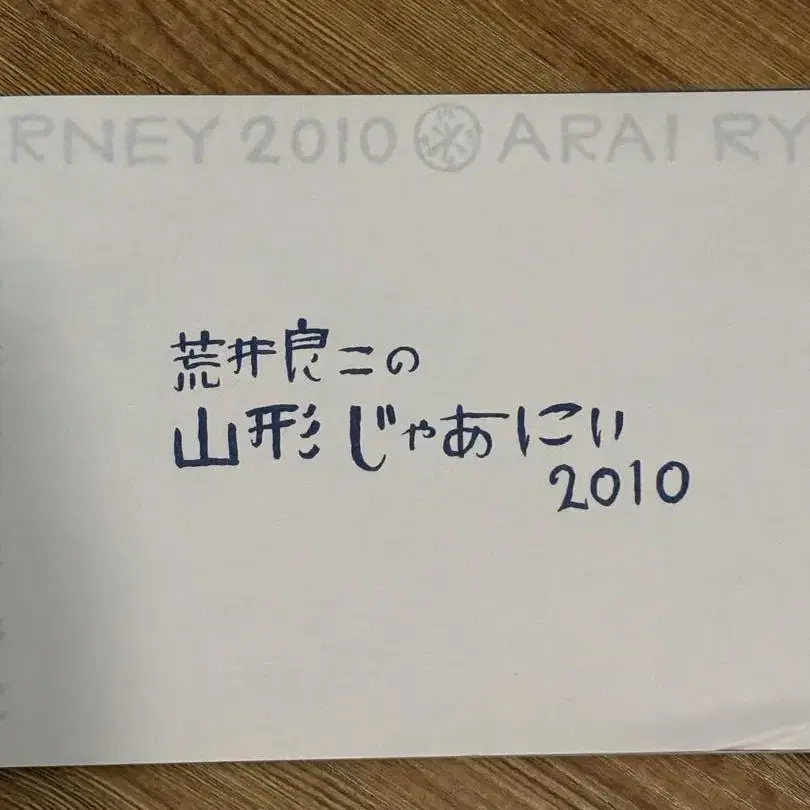 RNEY 2010 ARAI RY
荒井良二の
山形じゃあにぃ
2010